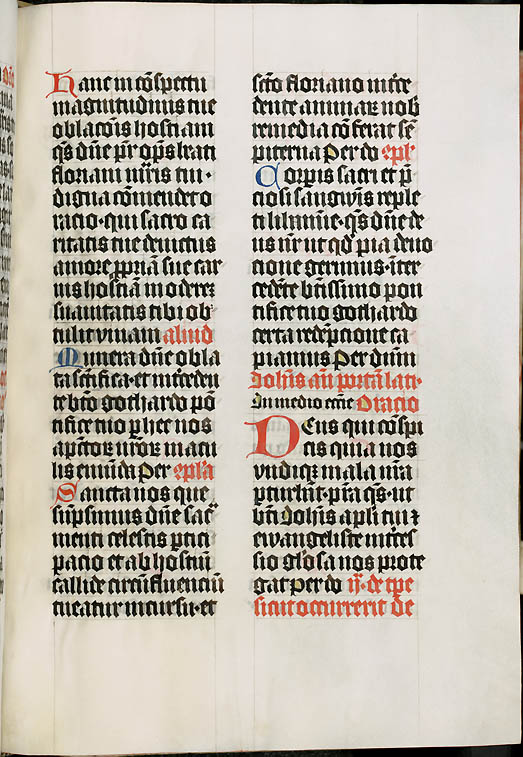 Hanc in cōspectu
magnitudinis tue
oblacōis hostiam
q̄s dn̄e pr̄ op̄s beati
floriani m̄ris tui ·
digna cōmendet o
racio · qui sacro ca
ritatis tue deuictus
amore ppriā sue car
nis hostiā in oderē
suauitatis tibi ob
tulit vnicam aliud
Munera dn̄e obla
ta scīfica · et int̄ceden
te bt̄o gothardo pō
tifice tuo p̄ hec nos
a pctōꝝ nr̄oꝝ macu
lis emūda Per ep̄la
Sancta nos que
sūpsimus dn̄e sac̄
menti celestis ptici
pacio et ab hostiū
callide circūfluenciū
tueatur incursu · et
scō floriano int̄ce
dente animaꝝ nob̄
remedia cōferat sē
piterna Per do ep̄l
Corpis sacri et p̄
ciosi sangwīs reple
ti libamine · q̄s dn̄e de
us nr̄ ut qd̄ pia deuo
cione gerimus · int̄
cedēte bt̄issimo pon
tifice tuo gothardo
certa redēpcione ca
piamus Per dn̄m
Joh̄is an̄ portā lati ·
In medio ecce Oracio
Deus qui cōspi
cis quia nos
vndiqꝫ mala nr̄a
pturbāt · p̄ta q̄s · ut
bt̄i Joh̄is apl̄i tui ⁊
ewangeliste int̄ces
sio gl̄osa nos prote
gat per do ij · de tp̄e
si cui occurrerit de